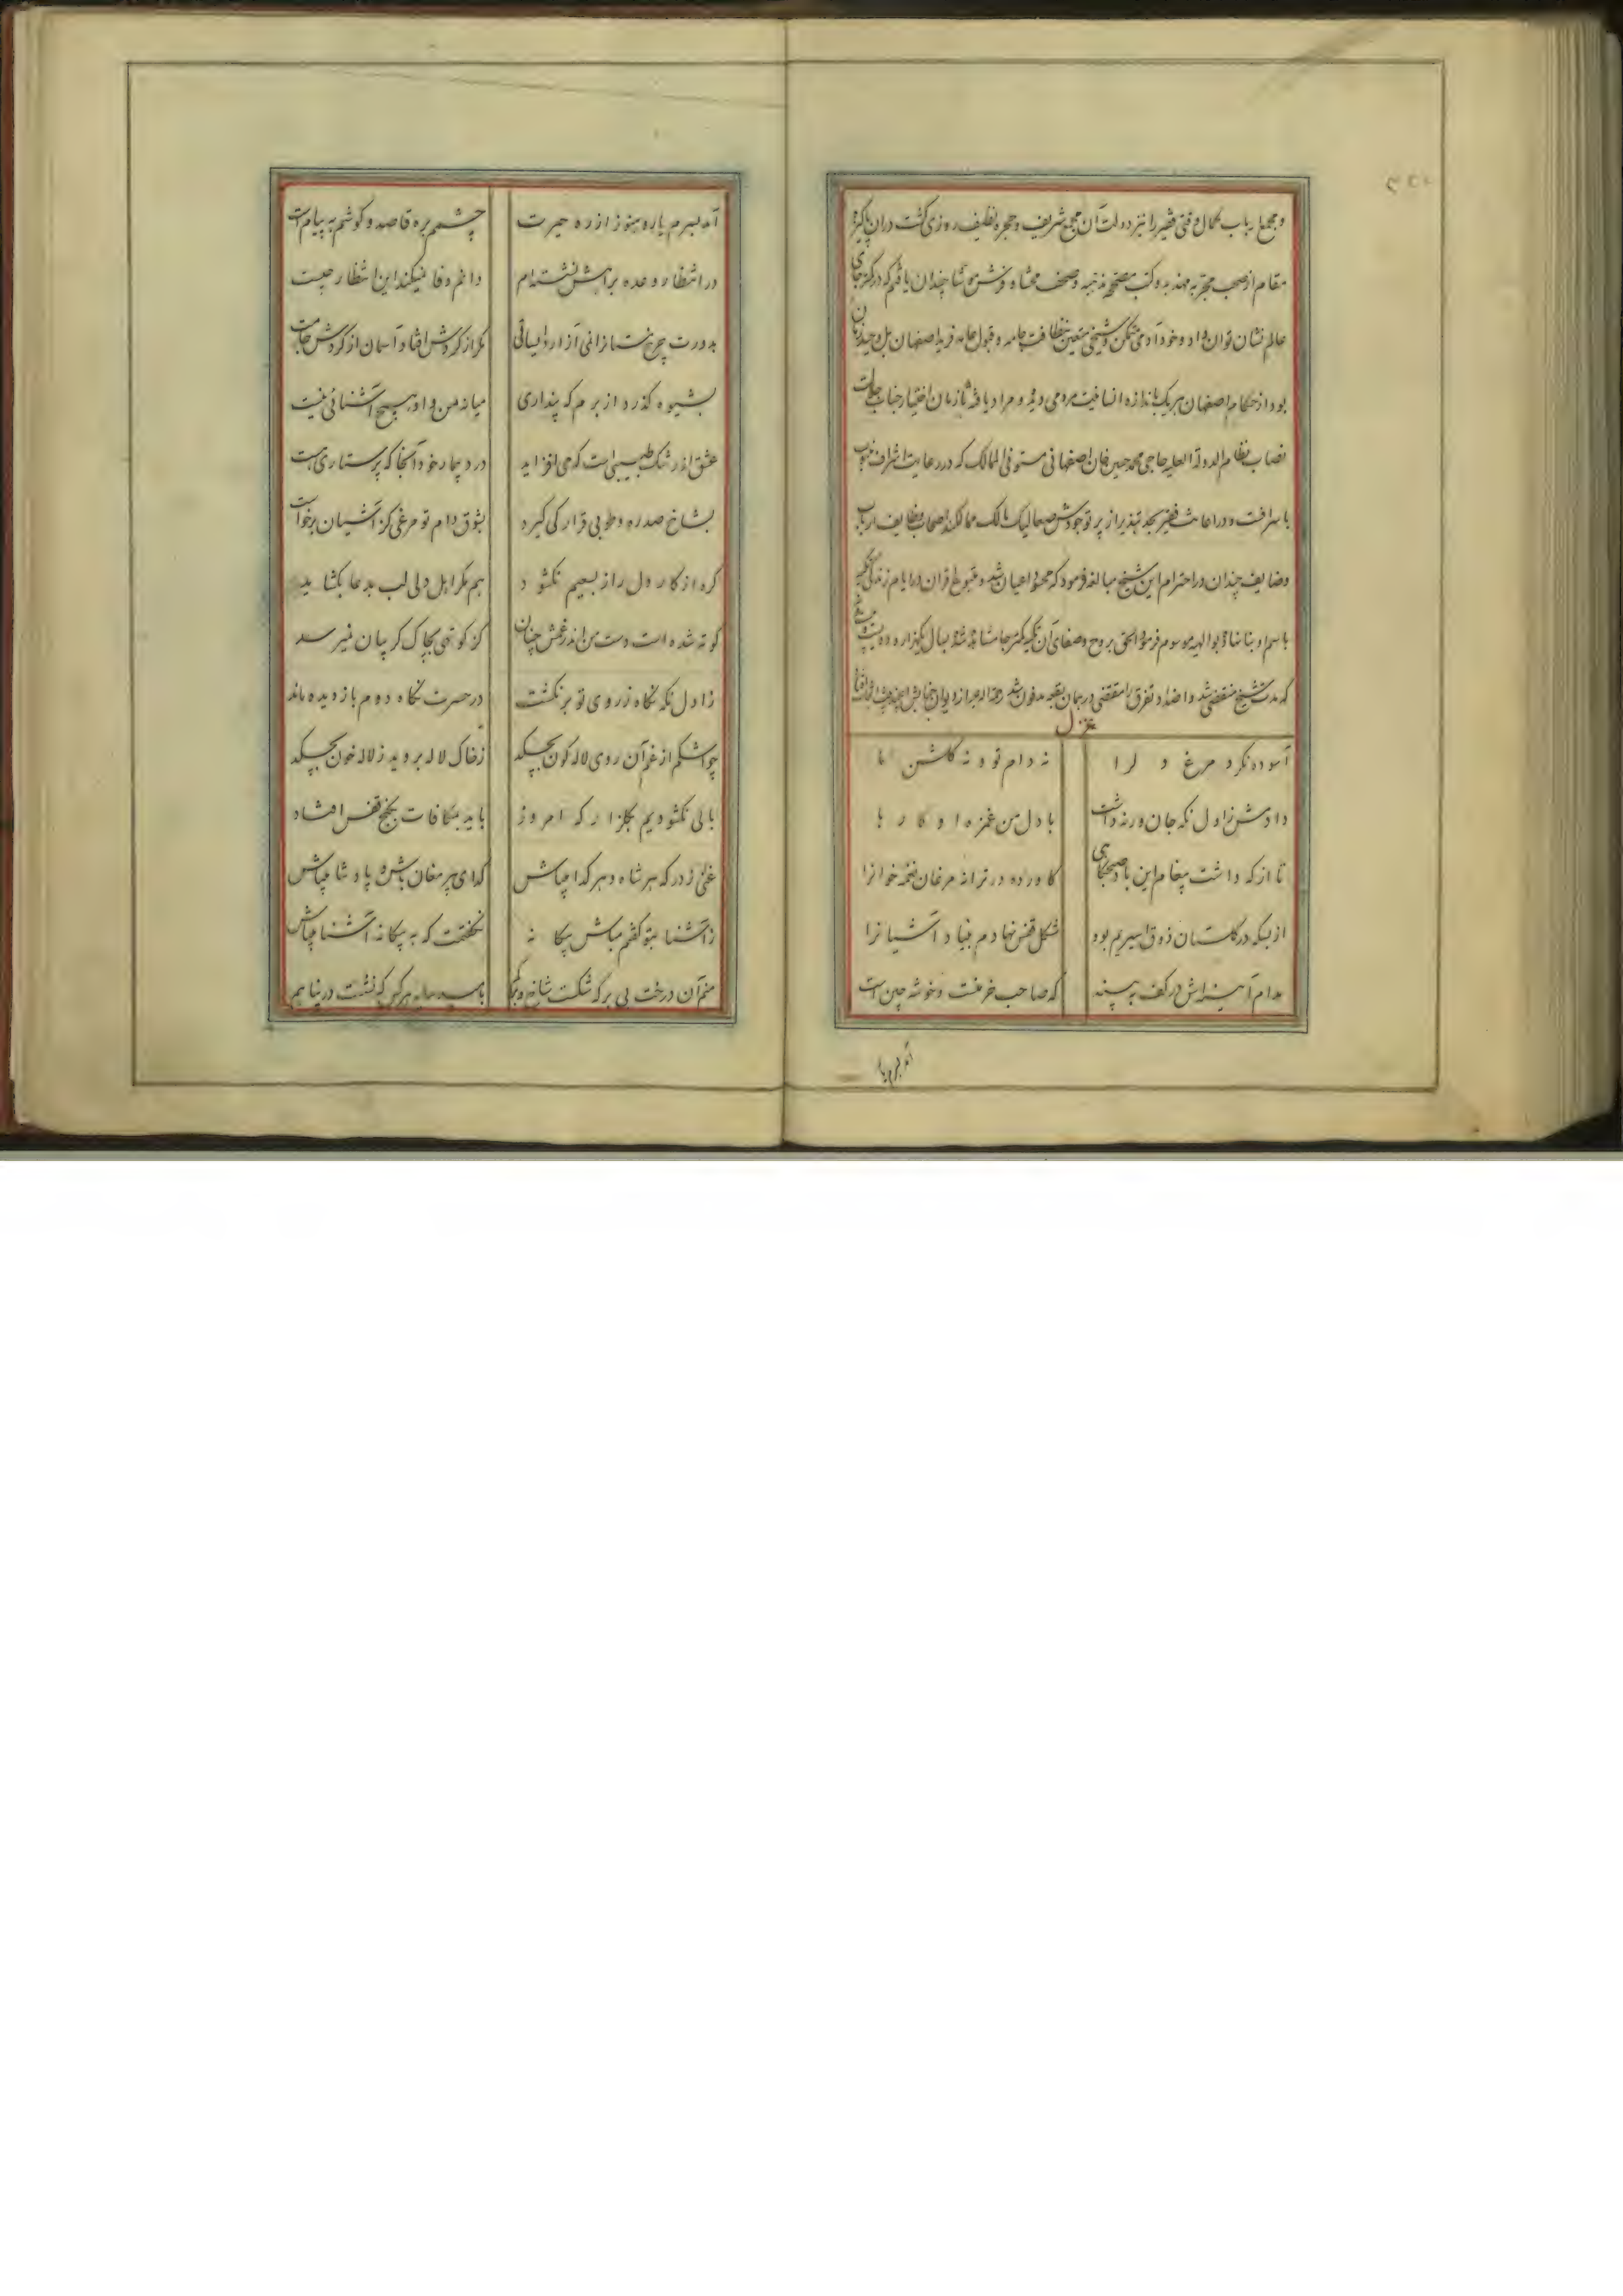 و مجمع ارباب کمال وقتی فقیر را نیز دولت آن مجمع شریف و حجره نظیف روزی گشت در آن پاکیزه
مقام از صحب محبره مهذبه و کتب مصححه مذهبه و صحف محشاه و فرش موشا چندان یافتم که در کمتر جای
عالم نشان توان داد و خود آدمی متمکن و شیخی متعین بنظافت جامه و قبول عامه فرید اصفهان بل وحید زمان
بود از حکام اصفهان هر یک باندازه انسانیت مردمی دیده و مراد یافته تا زمان اختیار جناب جلالت
نصاب نظام الدوله العلیه حاجی محمد حسین خان اصفهانی مستوفی الممالک که در رعایت اشراف
با سرافت و در اعانت فقیر بحد تبذیر از پرتو جودش صعالیک مالک ممالک اصحاب وظایف ارباب
وضایف چندان در احترام این شیخ مبالغه فرمود که محسود اعیان شد و مغبوط اقران در ایام زندگی
باسم او بنا نهاد و بوالهیه موسوم فرمود الحق بروح و صفای آن تکیه کمتر جا مشاهده شد بسال یکهزار و دویست
که مدت شیخ منقضی شد و اضداد تفرق را مقتضی در همان بقعه مدفون شد رحمه الله
غزل
آسوده نکرد مرغ و لرا
نه دام تو و نه گلشن ما
دادمش ز اول نکه جان ورنه داشت
با دل من غمزه او کار ها
تا از که داشت پیغام این باد صبحگاهی
کاورده در ترانه مرغان نغمه خوانرا
از بسکه در گلستان ذوق اسیریم بود
شکل قفس نهادم بنیاد آشیانرا
مدام آستین‌اش در کف به پسند
که صاحب خرمنت و خوشه چین است
آمد بسرم یار و هنوز از ره حیرت
چشمم بره قاصد و گوشم به پیام است
در انتظار وعده براهش نشسته‌ام
دانم وفا نمیکند این انتظار چیست
بدورت چرخ نتنازانی آزار و لیسانی
مگر از گردش افتاد آسمان از گردش جامت
بشیوه گذرد از برم که پنداری
میانه من و او هیچ آشنائی نیست
عشق از رشک طبیبی است که می افزاید
درد بیمار خود آنجا که پرستاری هست
بشاخ صدره و طوبی قرار کی گیرد
بشوق دام تو مرغی کز آشیان برخواست
گره از کار دل راز بسعیم نکشود
هم مگر اهل دلی لب بدعا بکشاید
کوته شده است دست من اندر غمش چنان
کز کوتهی بچاک گریبان نمیرسد
ز اول نکه نگاه ز روی تو بر نکشت
در حسرت نگاه دوم باز دیده ماند
چو اشکم از غم آن روی لاله گون بچکد
ز خاک لاله بروید ز لاله خون بچکد
بالی نکشودیم بگلزار که امروز
باید بمکافات بکنج قفس افشاند
غنی ز درگه هر شاه و هر گدا میباش
گدای پیر مغان باش و پادشا میباش
ز آشنا بتو گفتم مباش بیگانه
نگفتمت که به بیگانه آشنا میباش
منم آن درخت بی برگ شکسته شاخه و برگم
بامید سایه هر کس که نشست در پناهم
آمد بسرم یار